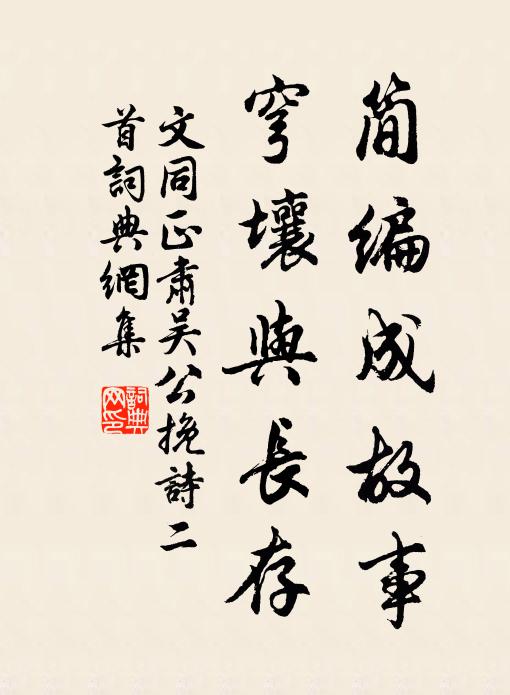 簡編成故事
穹壤與長存
文同正肅吳公挽詩二
首詞典網集
詞典
网印